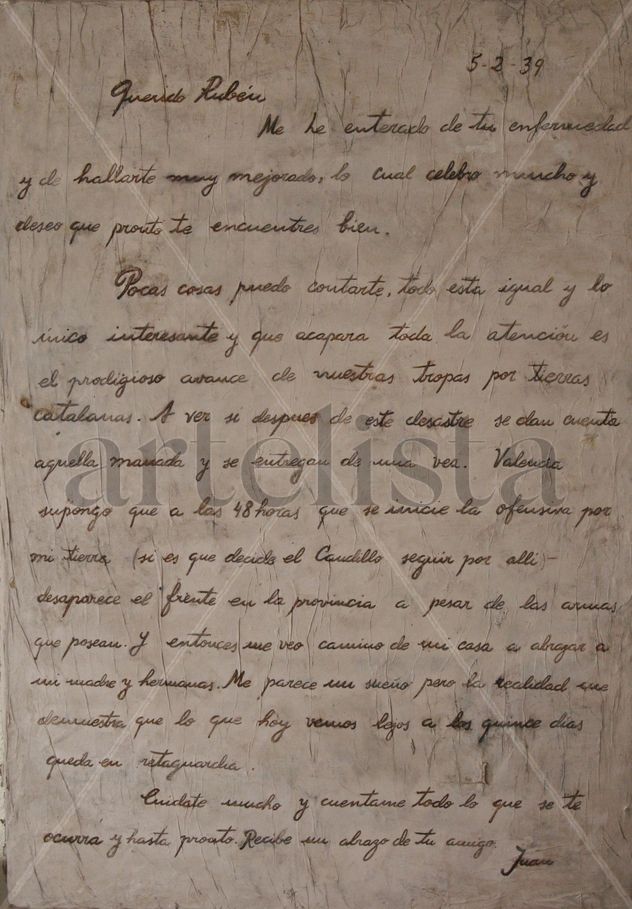 5-2-39
Querido Rubén
Me he enterado de tu enfermedad
y de hallarte muy mejorado, lo cual celebro mucho y
deseo que pronto te encuentres bien.
Pocas cosas puedo contarte, todo esta igual y lo
único interesante y que acapara toda la atención es
el prodigioso avance de nuestras tropas por tierras
catalanas. A ver si despues de este desastre se dan cuenta
aquella manada y se entregan de una vez. Valencia
artelista
supongo que a las 48 horas que se inicie la ofensiva por
mi tierra (si es que decide el Caudillo seguir por alli)-
desaparece el frente en la provincia a pesar de las armas
que posean. Y entonces me veo camino de mi casa a abrazar a
mi madre y hermanas. Me parece un sueño pero la realidad me
demuestra que lo que hoy vemos lejos a los quince dias
queda en retaguardia.
Cuidate mucho y cuentame todo lo que se te
ocurra y hasta pronto. Recibe un abrazo de tu amigo.
Juan